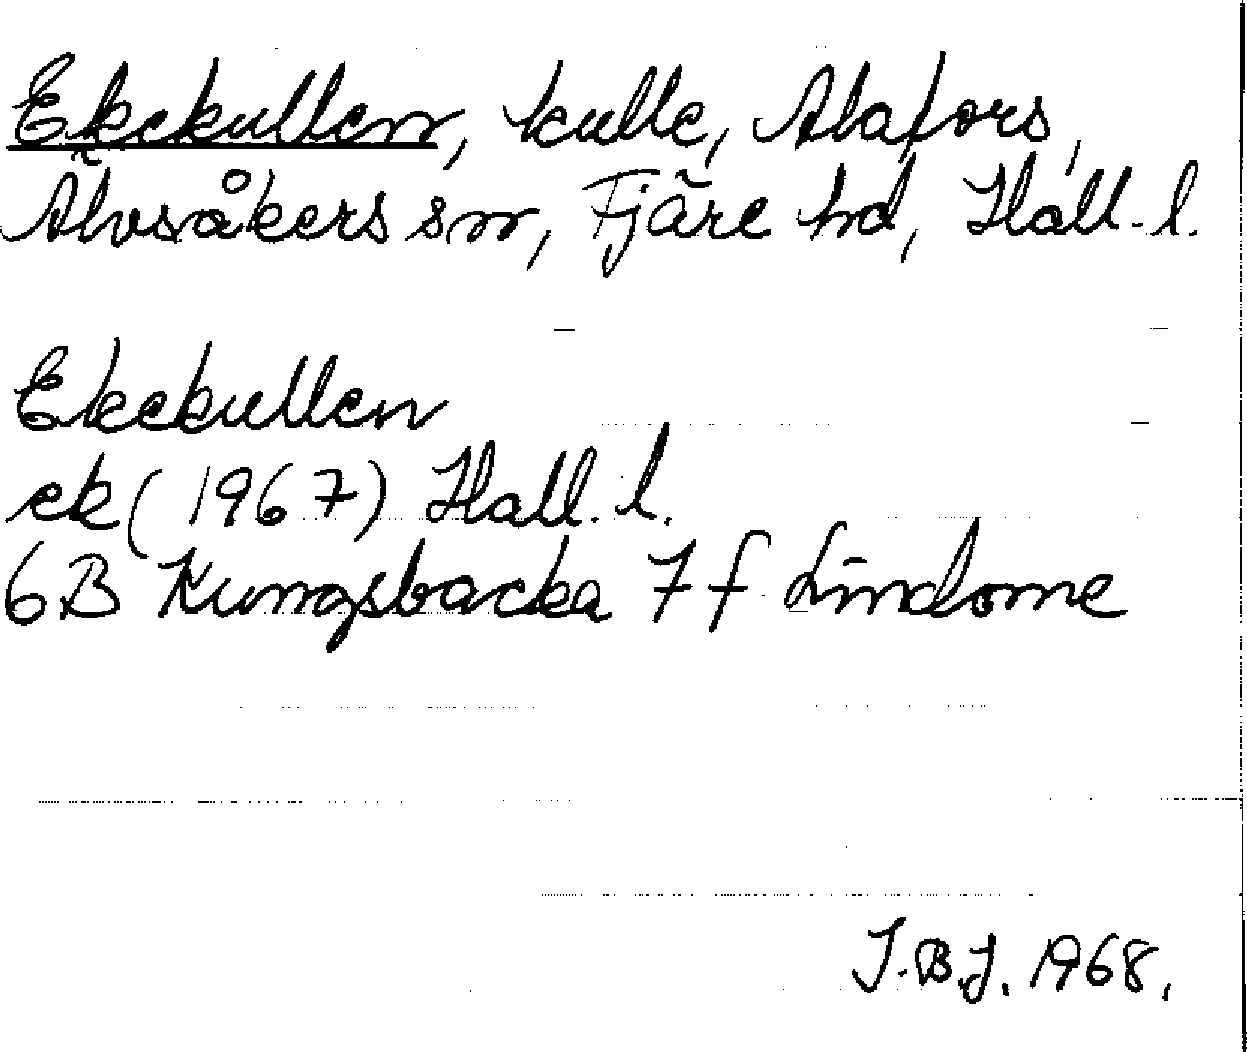 Ekekullen, kulle, Alafors,
Älvsåkers sn, Fjäre hd, Hall. l.
Ekekullen
ek (1967) Hall. l.
6B Kungsbacka 7f Lindome
J.B.J. 1968.